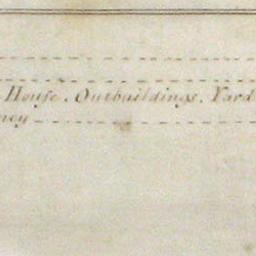 House. Outbuildings. Yard
ney